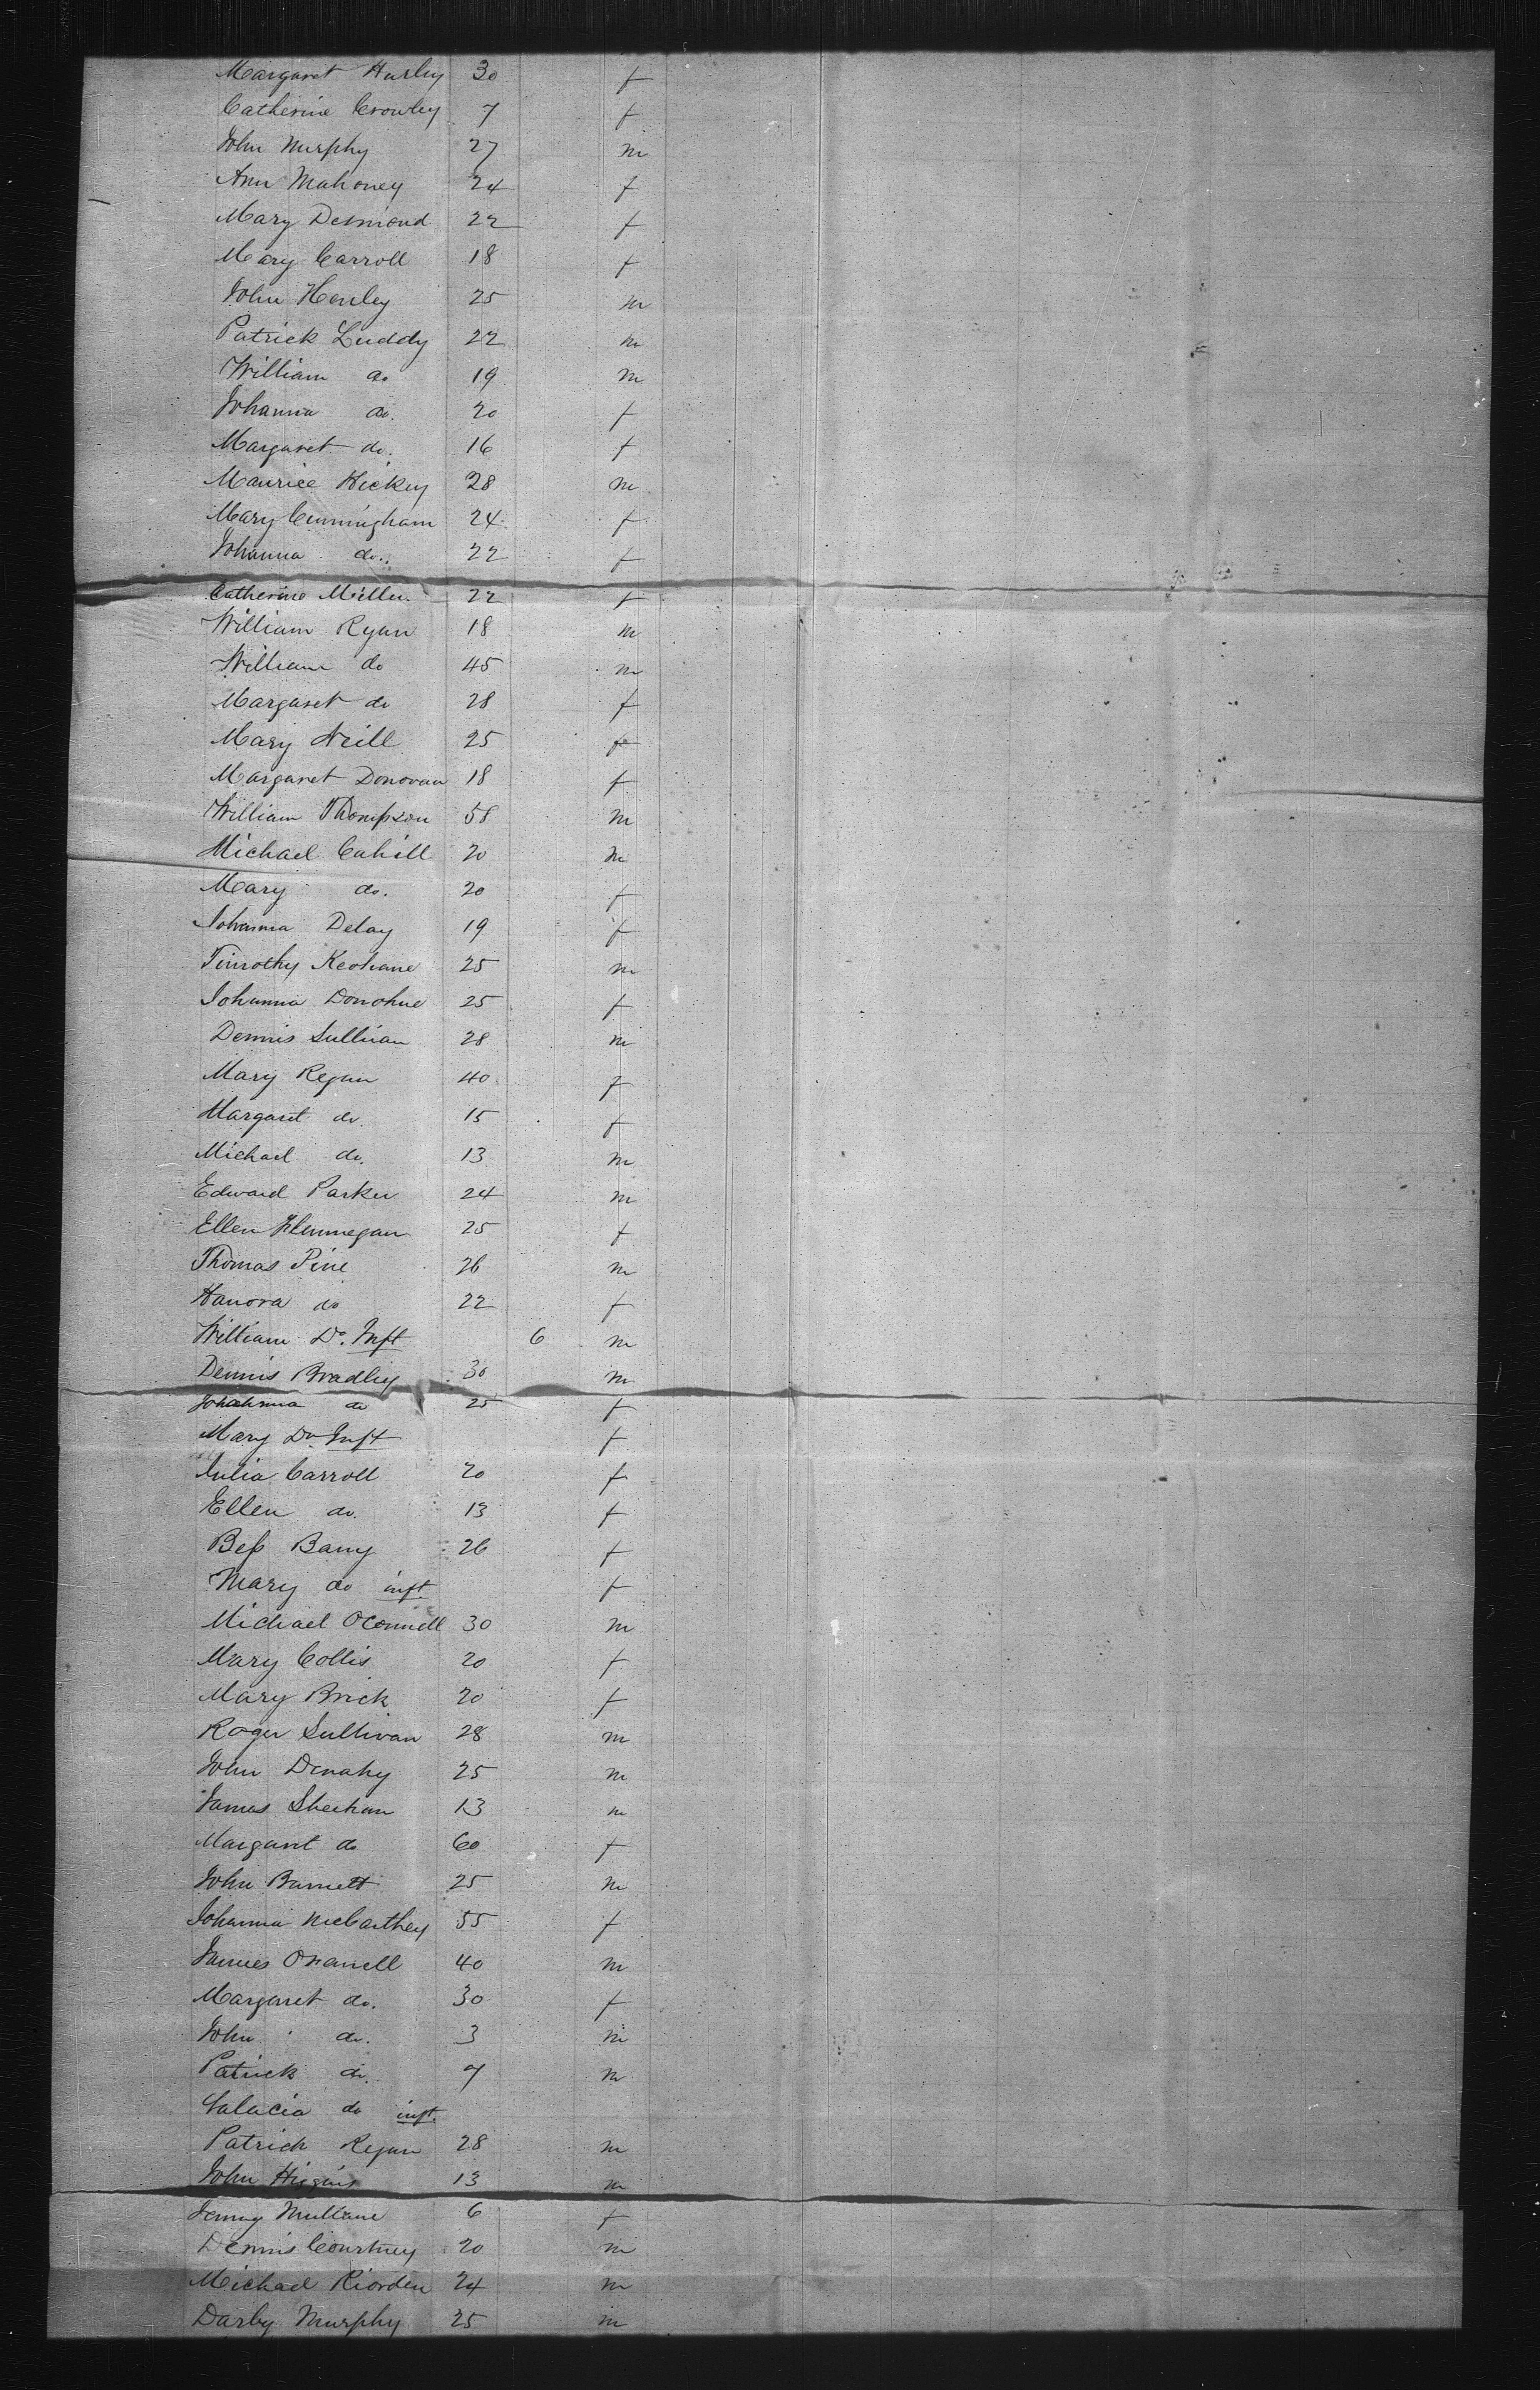 Margaret Hurley 30 f
Catherine Crowley 7 f
John Murphy 27 m
Ann Mahoney 24 f
Mary Desmond 22 f
Mary Carroll 18 f
John Henley 25 m
Patrick Luddy 22 m
William do 19 m
Johanna do. 20 f
Margaret do. 16 f
Maurice Hickey 28 m
Mary Cunningham 24 f
Johanna do. 22 f
Catherine Miller 22 f
William Ryan 18 m
William do 45 m
Margaret do 28 f
Mary Neill 25 f
Margaret Donovan 18 f
William Thompson 58 m
Michael Cahill 20 m
Mary do. 20 f
Johanna Delay 19 f
Timothy Keohane 25 m
Johanna Donohue 25 f
Dennis Sullivan 28 m
Mary Regan 40 f
Margaret do. 15 f
Michael do. 13 m
Edward Parker 24 m
Ellen 25 f
Thomas Pine 26 m
Hanora do 22 f
William Do. Inft 6 m
Dennis Bradley 30 m
Johahnna do 25 f
Mary Do Inft f
Julia Carroll 20 f
Ellen do. 13 f
Bess Barry 26 f
Mary do inft. f
Michael OConnell 30 m
Mary Collis 20 f
Mary Brick 20 f
Roger Sullivan 28 m
John Denahy 25 m
James Sheehan 13 m
Margaret do 60 f
John Barnett 25 m
Johanna McCarthey 55 f
James 40 m
Margaret do. 30 f
John do. 3 m
Patrick do. 7 m
do inft.
Patrick Regan 28 m
John Higgins 13 m
Mullane 6 f
Dennis Courtney 20 m
Michael Riorden 24 m
Darby Murphy 25 m